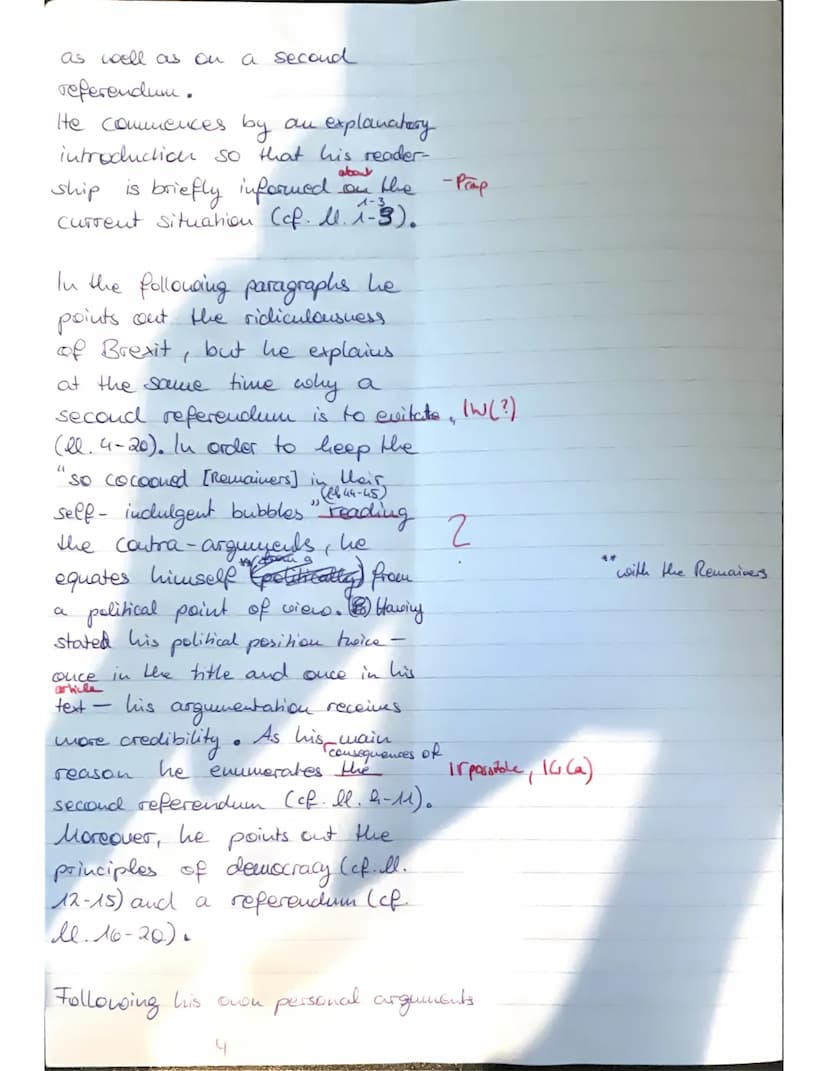 as well as on a second
referendum.
He commences by an explanatory
introduction so that his reader-
about
ship is briefly informed on the -Präp
1-3
current situation (cf. ll. 1-3).
In the following paragraphs he
points out the ridiculousness
of Brexit, but he explains
at the same time why a
second referendum is to evitate, IW(?)
(ll. 4-20). In order to keep the
"so cocooned [Remainers] in their
(ll. 44-45)
self-indulgent bubbles" reading
the contra-arguments, he ?
equates himself ** (politically) from ** with the Remainers
a political point of view. Having
stated his political position twice -
once in the title and once in his
article
text - his argumentation receives
more credibility. As his main
consequences of
reason he enumerates the
second referendum (cf. ll. 2-11).
Moreover, he points out the
principles of democracy (cf. ll.
12-15) and a referendum (cf.
ll. 16-20).
Following his own personal arguments
4